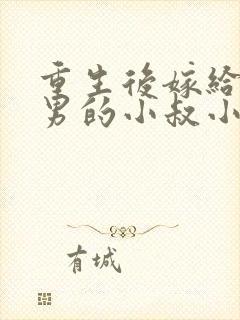 重生後嫁給
男的小叔小
有城